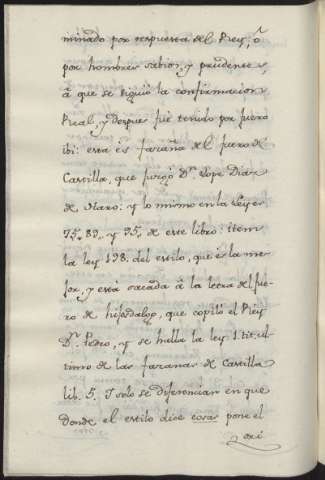 minado por respuesta del Rey, ò
por hombres sabios, y prudentes,
à que se siguió la confirmacion
Real, y despues fué tenido por fuero
ibi: esta és fazaña del fuero de
Castilla, que juzgó Dn. Lope Diaz
de Haro: y lo mismo en la Ley es
75. 83. y 95. de este libro: item
la ley 198. del estilo, que és la me-
jor, y está sacada à la letra del fue-
ro de hijosdalgo, que copiló el Rey
Dn. Pedro, y se halla la ley 1. tit. ul-
timo de las fazanas de Castilla
lib. 5. Y solo se diferencian en que
donde el estilo dice cosas pone el
ori